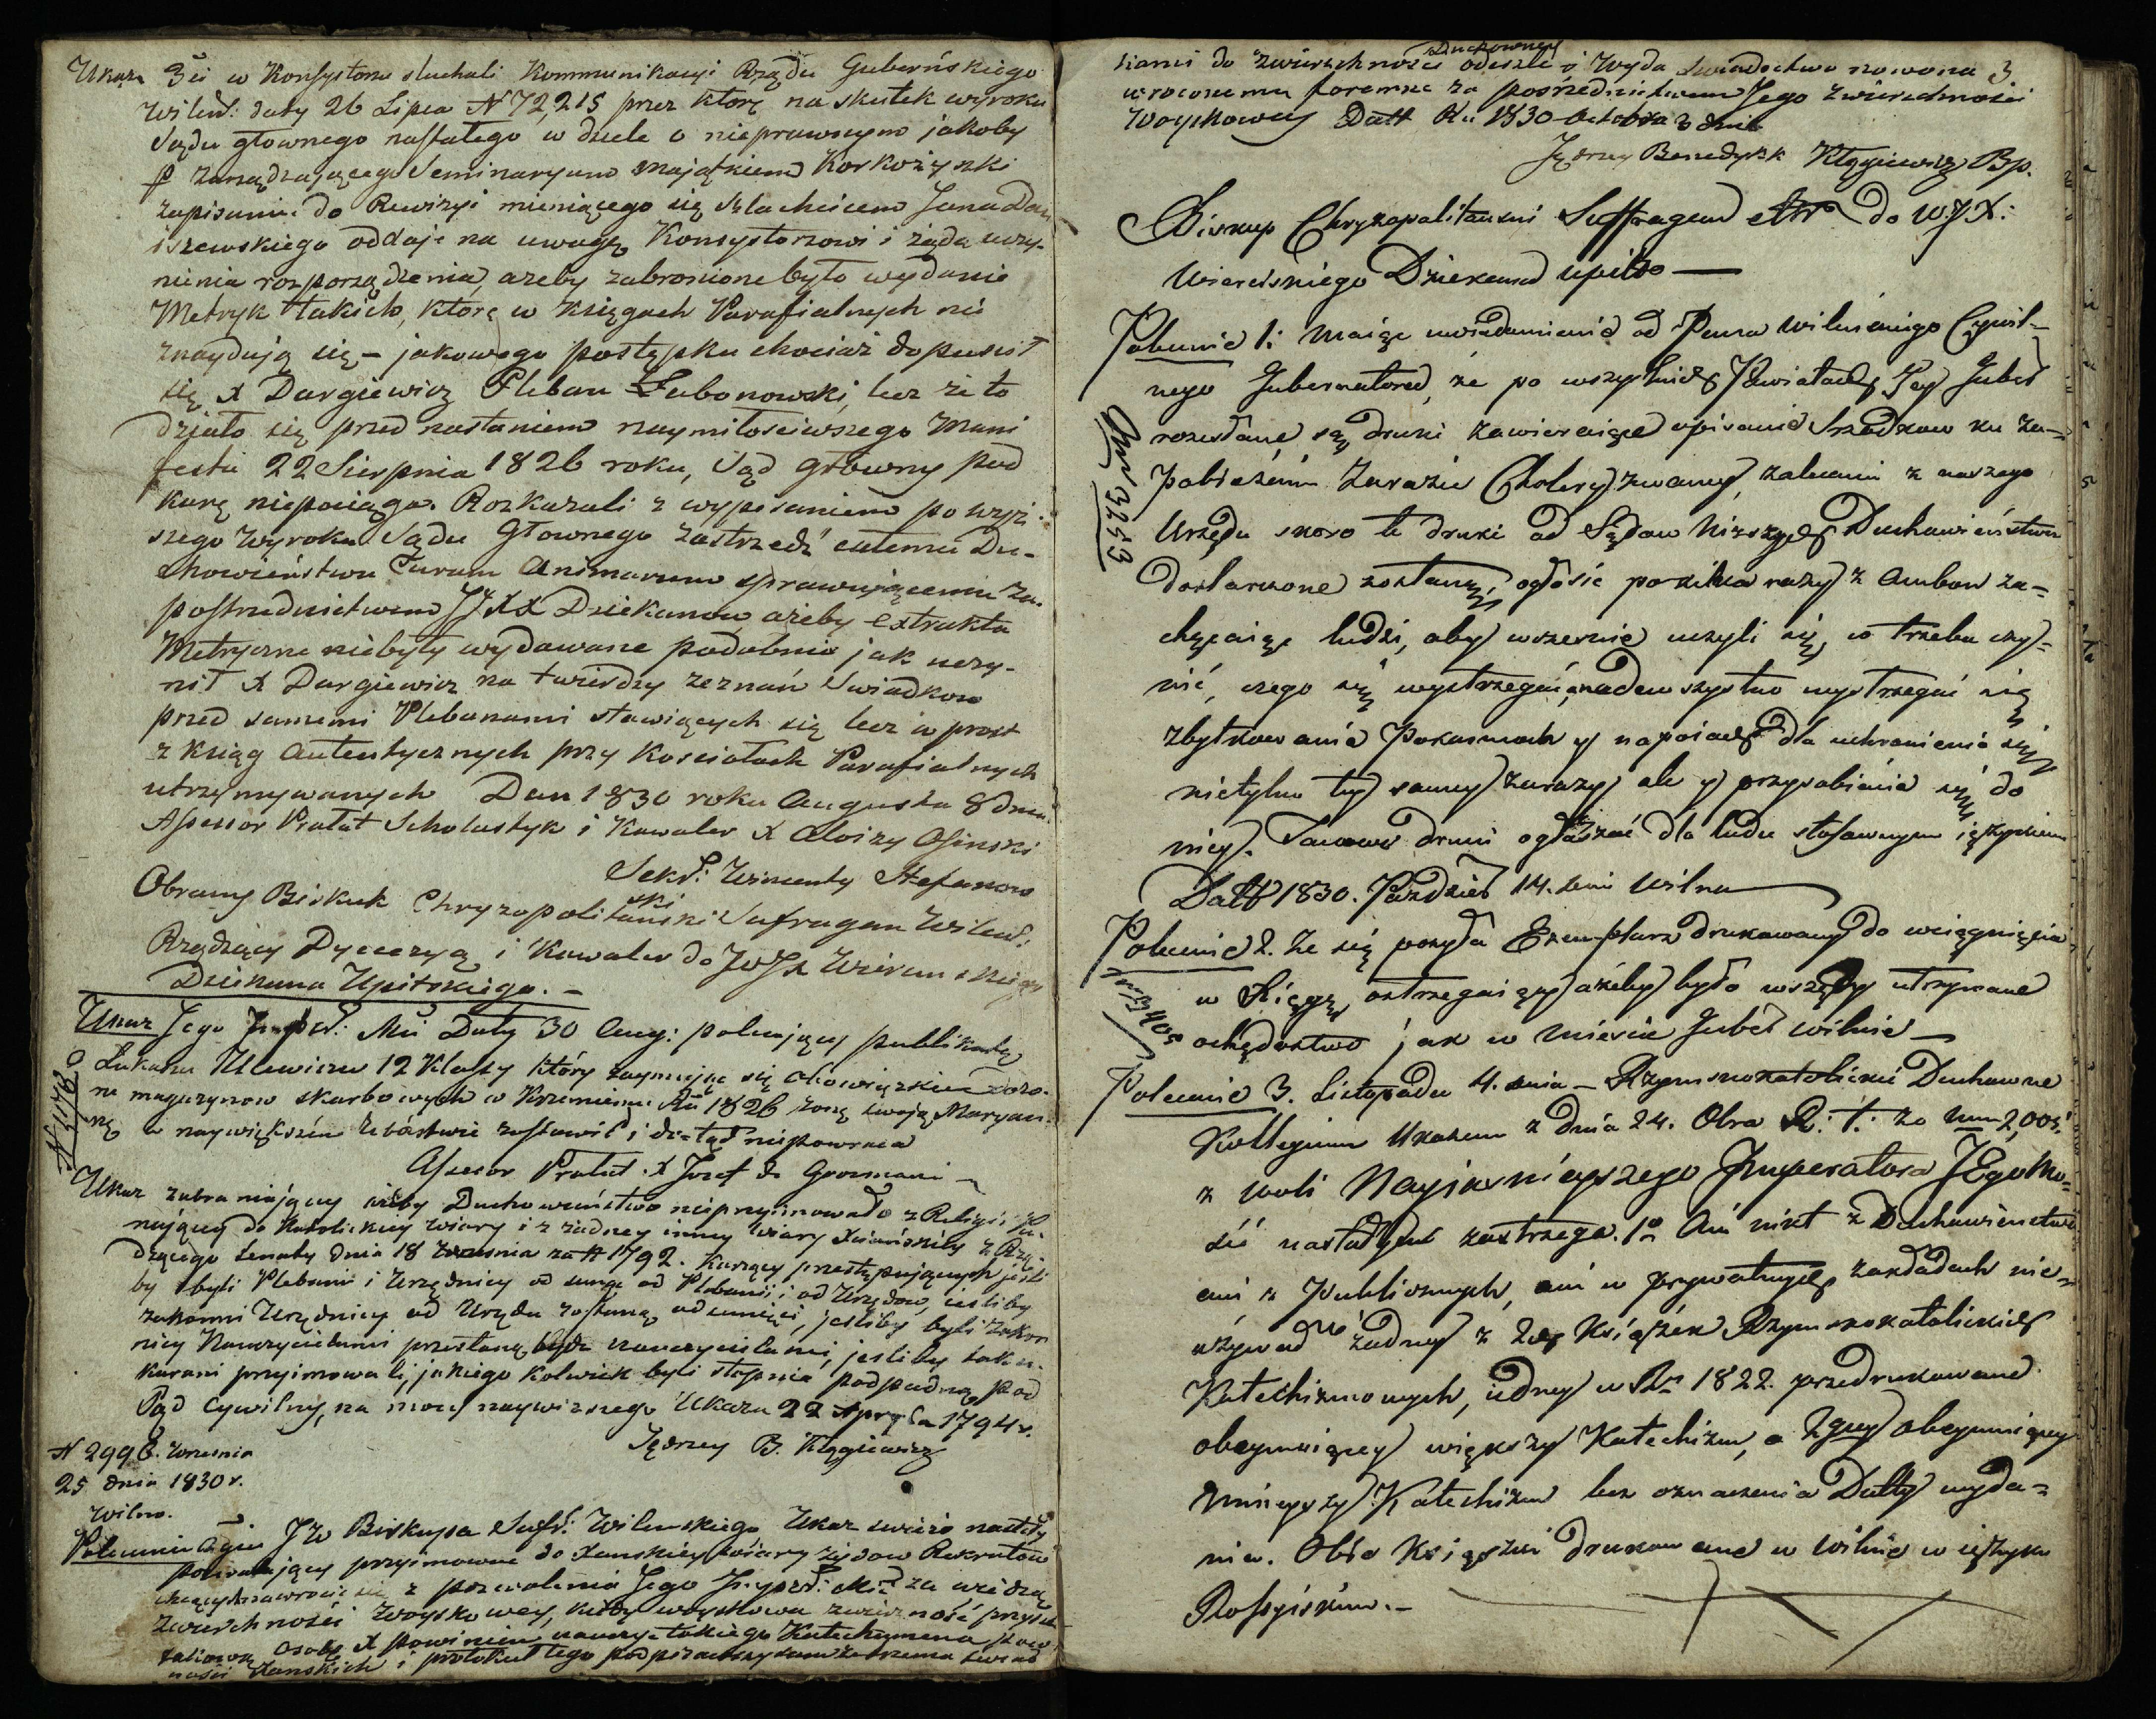 Ukaz 3ci w Konsystorzu słuchali Kommunikacyi Rządu Guberńskiego
Wileńs: daty 26 Lipca N 72,215 przez którę na skutek wyroku
Sądu głownego nastałego w dziele o nieprawnym jakoby
P zarządzającego Seminaryum majątkiem Korkożyszki
zapisaniu do Rewizyi mieniącego się szlachcicem Jana Dan
iszewskiego oddaje na uwagę Konsystorzowi i żąda uczy-
nienia rozporządzenia, ażeby zabronione było wydanie
Metryk takich, które w księgach Parafialnych nie
znaydują się – jakowego postępku chociaż dopuścił
się X Dargiewicz Pleban Łabonowski, lecz że to
działo się przed nastaniem naymiłościwszego Mani
festu 22 Sierpnia 1826 roku, Sąd główny pod
karę niepociąga. Rozkazali z wypisaniem powyż
szego Wyroku Sądu Głownego zastrzedz całemu Du-
chowieństwu Curam Animarum sprawującemu za
postrzednictwem JJXX Dziekanow, ażeby extrakta
Metryczne niebyły wydawane podobnie jak uczy-
nił X Dargiewicz na twierdzy zeznań Swiadkow
przed samemi Plebanami stawiących się lecz w prost
z Ksiąg autentycznych przy Kosciołach Parafialnych
utrzymywanych Dan 1830 roku Augusta 8 dnia.
Assessor Prałat Scholastyk i Kawaler X Aloizy Osinski
Sekr: Wincenty Stefanow
ski
Obrany Biskup Chryzopolitański Sufragan Wileńs:
Rządzący Dyecezyą i Kawaler do JWJX Wieren skiego
Dziekana Upitskiego. –
Ukaz Jego Imper: Mci Daty 30 Aug: polecający publikatę
N 3178
Łukasza Ulewicza 12 Klassy który zaymując się obowiązkiem dozo.
ru magazynow skarbowych w Krzemieńcu Ru 1826 żonę swoję Maryan.
nę w naywiększém Ubóstwie zostawił i do tąd niepowraca
Assesor Prałat X Jozef de Gromani –
Ukaz zabraniający iżby Duchowieństwo nieprzyimowało z Religii Pa.
nującey do Katolickiey wiary i z żadney inney wiary Xciańskiéy z Rzą-
dzącego Senatu dnia 18 Września za # 1792. Karzący przestępujących jeśli
by byli Plebani i Urzędnicy od sumę od Plebanii i od Urzędow, jesliby
zakonni Urzędnicy od Urzędu zostaną odsunięci, jesliby byli zakon
nicy Nauczycielami przestaną być nauczycielami, jesliby zakon.
karani przyimowali, jakiego kolwiek byli stopnia podpadną pod
Sąd Cywilny, na mocy naywiższego Ukazu 22 Apryla 1794 r.
Jędrzey B. Kłągiewicz
N 2996. Września
25 dnia 1830 r.
Wilno.
Polecenie JW Biskupa Sufr: Wileńskiego Ukaz swieżo nastały
pozwalający przyimować do Xanskiey wiary żydow Rekrutow
chcących nawrócić się z pozwolenia Jego Imper: Mci za wiedzą
Zwierzchności Woyskowey, kiedy woyskowa zwierzność przysze
takową osobę X powinien nauczyć takiego Katechumena pow
ności Xanskich i protokuł tego podpisać
kiami do zwierzchności Duchowney odeszle i wyda Swiadectwo nowona 3
wroconemu foremne za posrzednictwem Jego zwierzchności
Woyskowey Datt Ru 1830 Octobra 3 dnia
Jędrzey Benedykt Kłągiewicz Bp.
Biskup Chryzopolitanski Suffragan etc do WJX:
Wierenskiego Dziekana Upitso –
Polecenie 1: Maiąc uwiadomienie od Pana Wileńskiego Cywil-
nego Gubernatora, że po wszystkich Powiatach Jey Guber
rozesłane są druki zawieraiące opisanie Srzodkow ku za-
Nr 3253
pobieżeniu Zarazie Cholery zwaney, zalecam z naszego
Urzędu skoro te druki od Sądow Niższych Duchowieństwu
dostarczone zostaną, ogłosić po kilka razy z Ambon za-
chęcaiąc ludzi, aby wszernie uczyli się, co trzeba czy-
nić, czego się wystrzegać, a nadewszystko wystrzegać się
zbytkowania Pokarmach y napoiach dla uchronienia się
nietylko tey samey zarazy ale y przysobiania się do
niey. Takowe druki ogłaszać dla ludu stosownym językiem
Datt 1830. Paździer 14. dnia Wilna
Polecenie 2. Że się posyła Exemplarz drukowany do wciągnięcia
w Księgę, ostrzegaiący ażeby było wszędzy utrzymane
Nr 3405
ochędostwo jak w mieście Guber Wilnie –
Polecenie 3. Listopadu 4. dnia – Rzymskokatolickie Duchowne
Kollegium Ukazem z dnia 24. 8bra R. t. za Num 2,005.
z woli Nayjasnieyszego Imperatora JEgoMo=
ści nastałym zastrzega. 1o Ani nikt z Duchowieństwa
ani w Publicznych, ani w prywatnych zakładach nie-
używał żadney z 2ch Książek Rzymskokatolickich
Katechizmowych, iedney w Ru 1822. przedrukowane
obeymuiącey większy Katechizm, a 2giey obeymuiącey
Mnieyszy Katechizm bez oznaczenia Datty wyda-
nia. Obie Książki drukowane w Wilnie w ięzyku
Rossyiskim. –